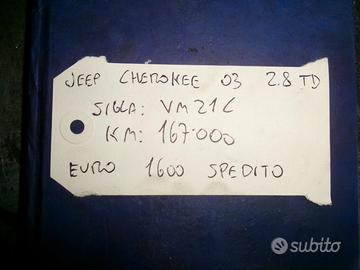 JEEP CHEROKEE 03 2.8 TD
SIGLA: VM21C
KM: 167.000
EURO 1600 SPEDITO
subito